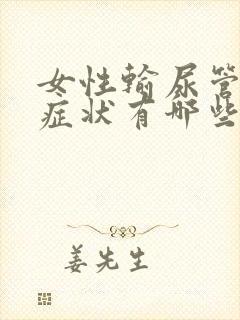 女性输尿管
症状有哪些
姜先生